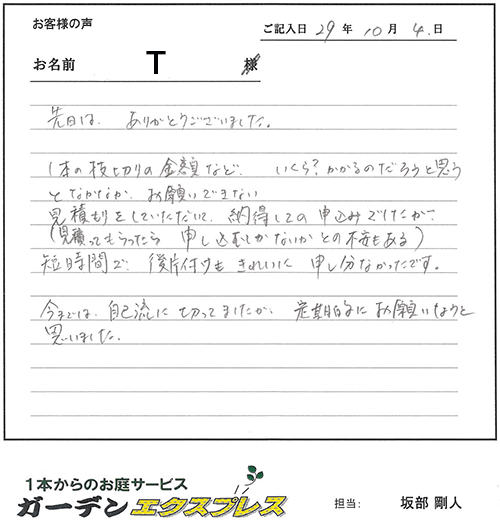 お客様の声
ご記入日 29 年 10 月 4 日
お名前 T 様
先日は、ありがとうございました。
1本の枝切りの金額など、いくら?かかるのだろうと思う
となかなか、お願いできない
見積もりをしていただいて、納得しての申込みでしたが、
(見積ってもらったら 申し込むしかないかとの不安もある)
短時間で、後片付けもきれいに申し分なかったです。
今までは、自己流に切ってましたが、定期的にお願いしようと
思いました。
1本からのお庭サービス
ガーデンエクスプレス
担当: 坂部 剛人